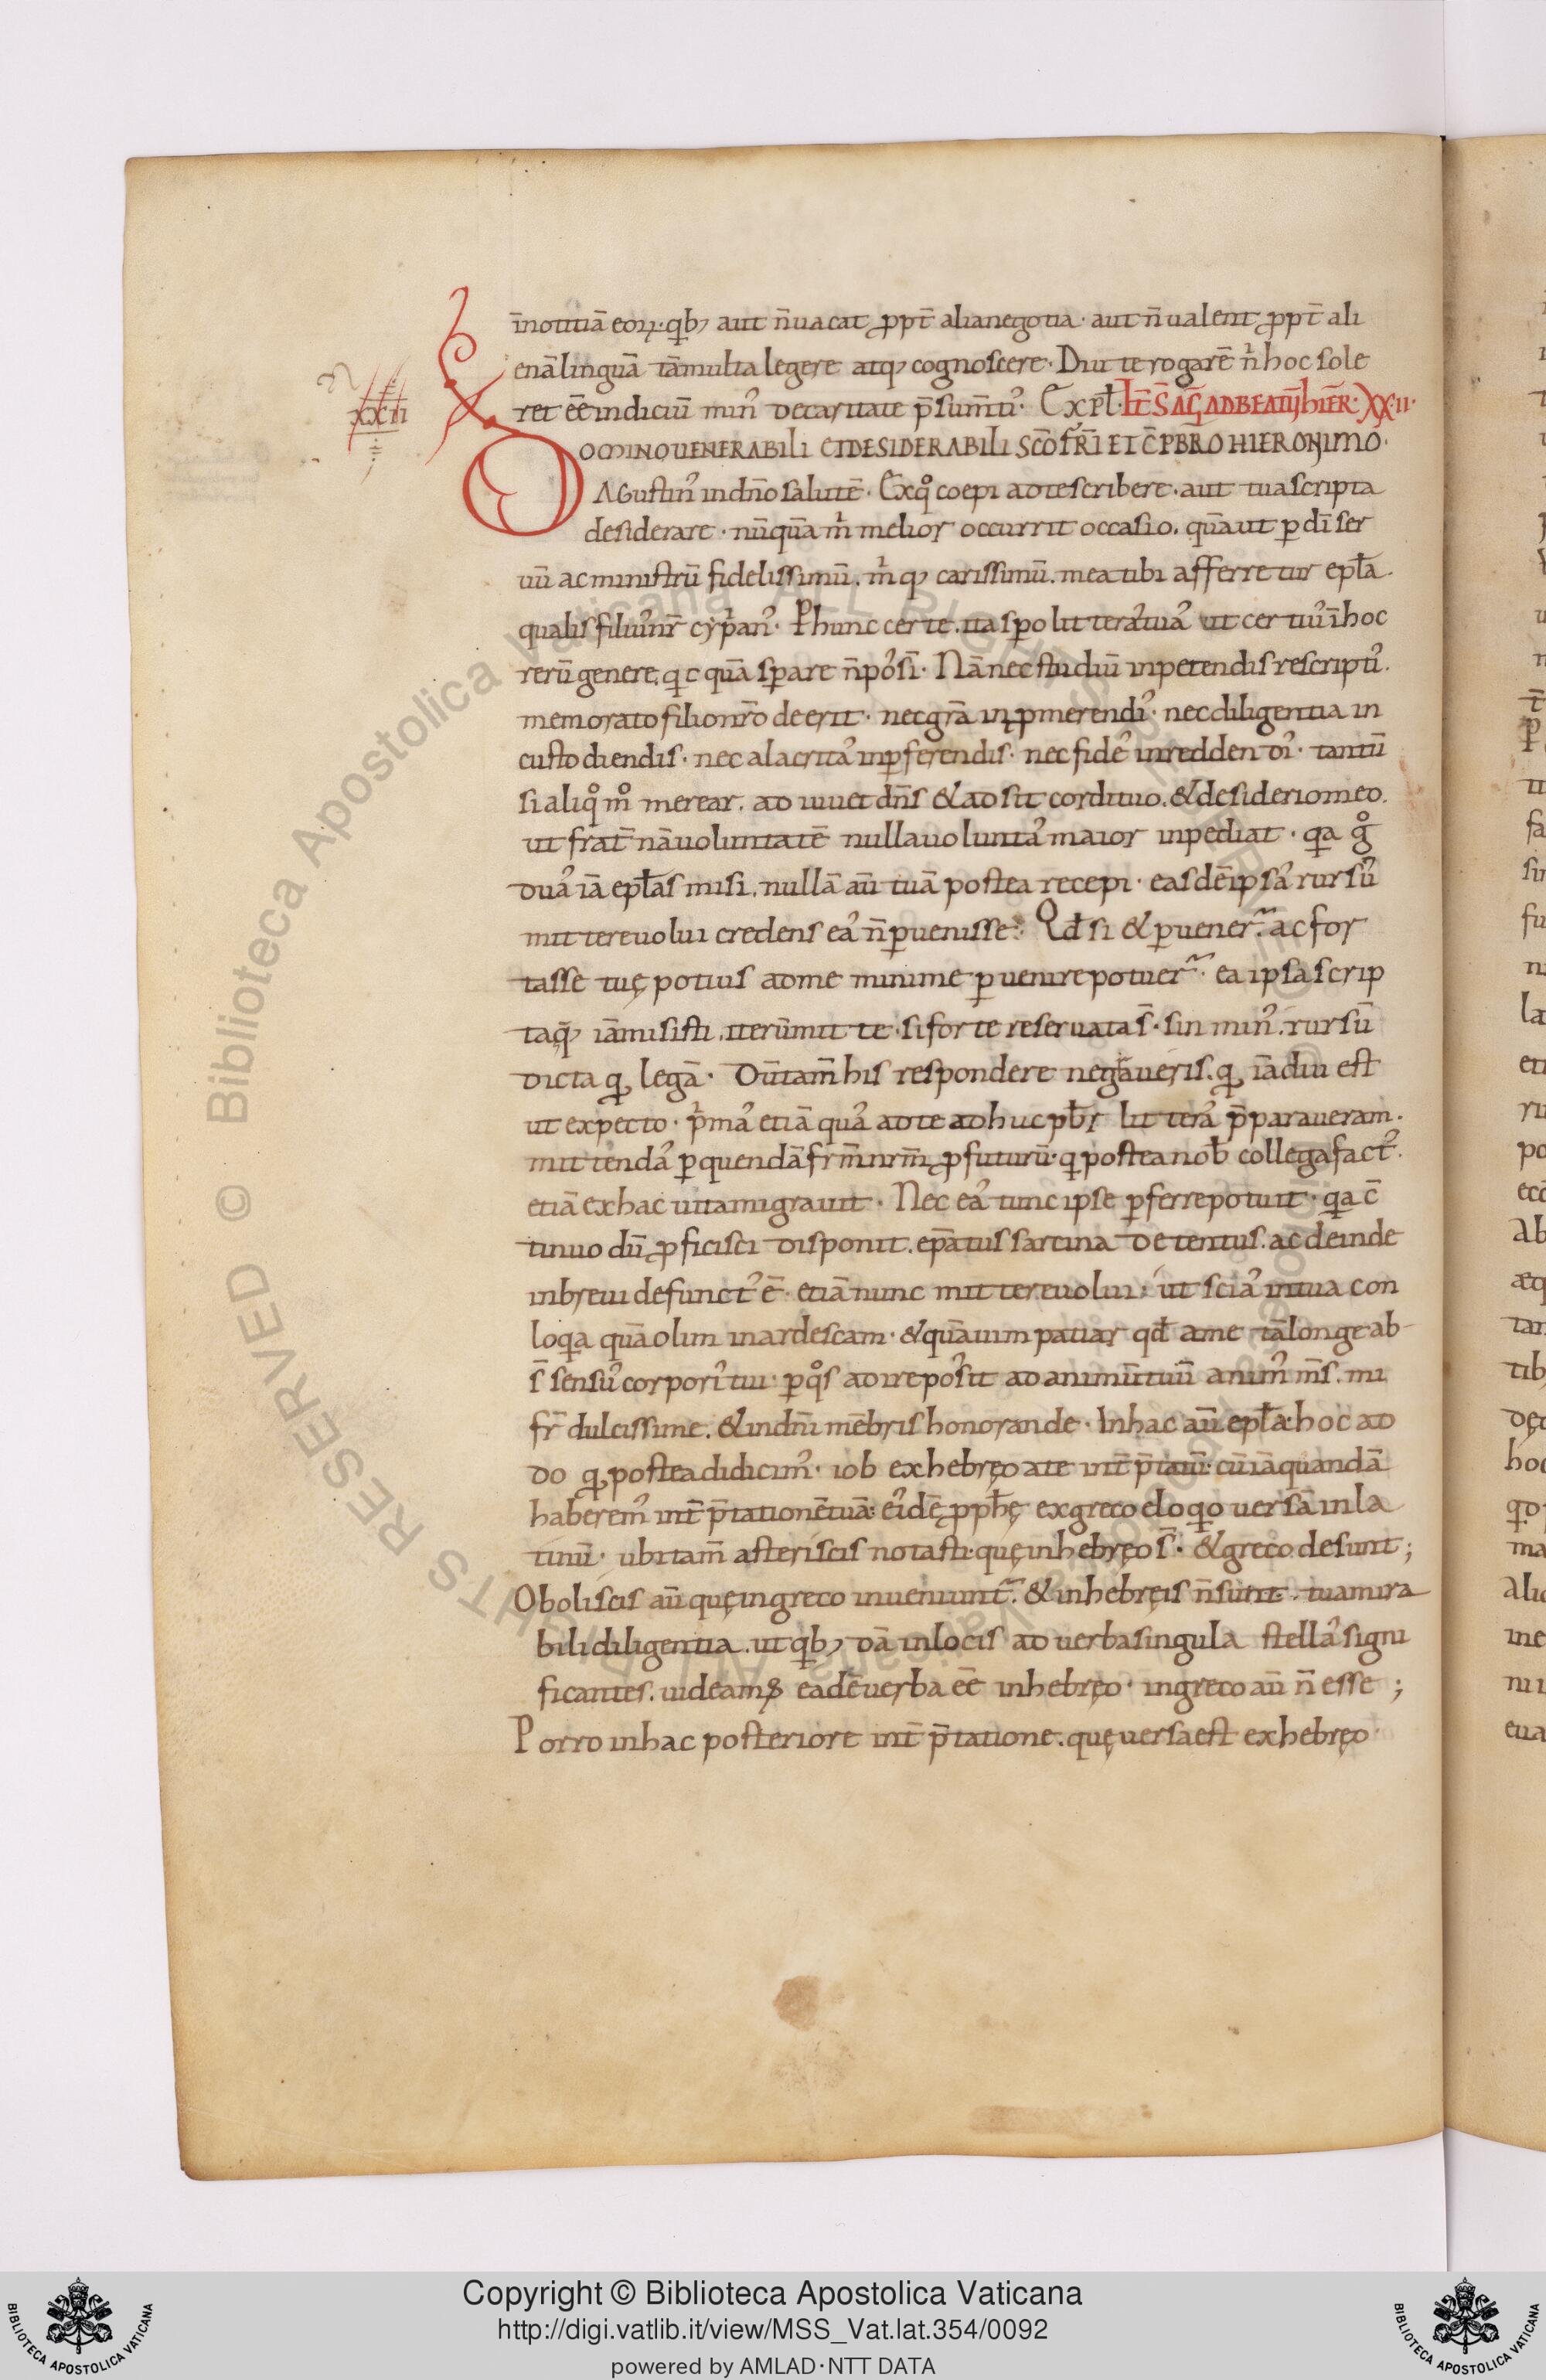 XXII
īnotitiā eoꝝ· qb; aut n̄ uacat ꝓpt̄ alia negotia· aut n̄ ualent ꝓpt̄ ali
enā linguā tā multa legere atq; cognoscere· Diu te rogarē n̄ hoc sole
ret ēē indiciū min᾿ de caritate p̄sum̄ti᾿· Expɫ· IT̄ S̄ AḠ AD BEATŪ HIER̄· XXII·
DOMINO UENERABILI ET DESIDERABILI SC̄O FR̄I ET C̄PB̄RO HIERONIMO·
AGustin᾿ in dn̄o salutē· Ex qͦ coepi ad te scribere· aut tua scripta
desiderare· nūquā m̍ melior occurrit occasio. quā ut ꝑ dī ser
uū ac ministrū fidelissimū. m̍ q; carissimū. mea tibi afferretur epɫa·
qualis filiu᾿ nr̄ cyp̍an᾿· Ꝑ hunc certe. ita spo littera᾿ tua᾿ ut certiu᾿ ī hoc
rerū genere. qcquā sperare n̄ po᾿sī· Nā nec studiū in petendis rescripti᾿.
memorato filio nr̄o deerit· nec gr̄a in ꝓmerendi᾿· nec diligentia in
custodiendis· nec alacrita᾿ in ꝑferendis· nec fide᾿ in reddendi᾿· tantū
si aliqͦ mͦ merear. adiuuet dn̄s & adsit cordi tuo. & desiderio meo.
ut frat̄nā uoluntatē nulla uolunta᾿ maior inpediat· qa gͦ
dua᾿ iā epɫas misi. nullā aū tuā postea recepi· easdē ipsa᾿ rursū
mittere uolui credens ea᾿ n̄ ꝑuenisse· Qđ si & ꝑuener̃· ac for
tasse tuę potius ad me minime ꝑuenire potuer̃· ea ipsa scrip
ta q̄; iā misisti. iterū mitte· si forte reseruata s̄· sin min᾿. rursū
dicta q̨ legā· Dū tam̄ his respondere ne gͣueris. q̨ iādiu est
ut expecto· p̍ma᾿ etiā qua᾿ ad te adhuc pb̄r littera᾿ p̄paraueram·
mittenda᾿ ꝑ quendā fr̄m̄ nr̄m̄ ꝓfuturū· q postea nob̄ collega fact᾿·
etiā ex hac uita migrauit· Nec ea᾿ tunc ipse ꝑferre potuit· qa c̄
tinuo dū ꝓficisci disponit. ep̄atus sarcina detentus. ac deinde
in breui defunct᾿ ē· etiā nunc mittere uolui· ut scia᾿ in tua con
loqa quā olim inardescam· & quā uim patiar qđ a me tā longe ab
s̄ sensu᾿ corpori᾿ tui· ꝑ qͦs adire po᾿sit ad animū tuū anim᾿ m̄s. mi
fr̄ dulcissime. & in dn̄i mēbris honorande· In hac aū epɫa· hoc ad
do q̨ postea didicim᾿· iob ex hebręo a te int̄p̄tatū· cū iā quandā
haberem᾿ int̄p̄tationē tuā· ei᾿dē ꝓpħę ex greco eloqo uersā in la
tinū· ubi tam̄ asteriscis notasti· quę in hebręo s̄· & greco desunt;
Oboliscis aū quę in greco inueniunt̃· & in hebręis n̄ sunt· tua mira
bili diligentia. ut qb; dā in locis ad uerba singula stella᾿ signi
ficantes. uideamꝰ eadē uerba ēē in hebręo· in greco aū n̄ esse;
Porro in hac posteriore int̄p̄tatione. quę uersa est ex hebręo·
Biblioteca Apostolica Vaticana ALL RIGHTS RESERVED ©
Copyright © Biblioteca Apostolica Vaticana
http://digi.vatlib.it/view/MSS_Vat.lat.354/0092
powered by AMLAD·NTT DATA
BIBLIOTECA APOSTOLICA VATICANA
BIBLIOTECA APOSTOLICA VATICANA